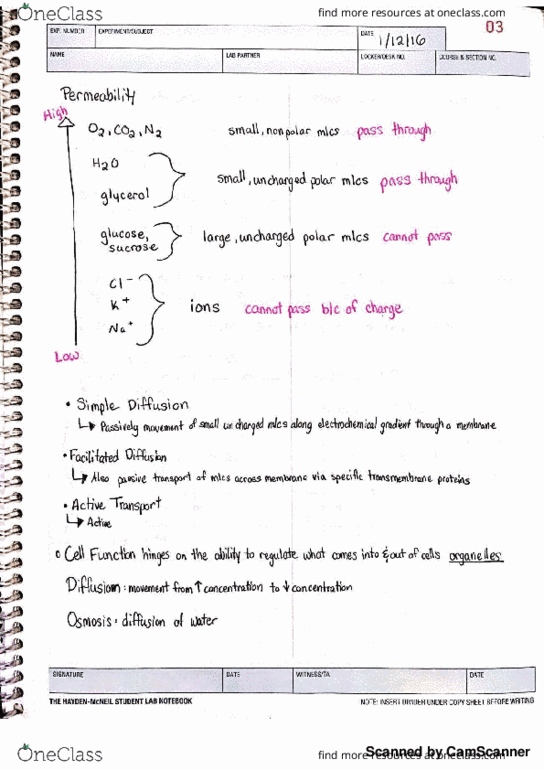 OneClass
find more resources at oneclass.com
03
EXP. NUMBER
EXPERIMENT/SUBJECT
DATE
1/12/16
NAME
LAB PARTNER
LOCKER/DESK NO.
COURSE & SECTION NO.
Permeability
High
O2, CO2, N2
small, nonpolar mlcs pass through
H2O
glycerol
small, uncharged polar mlcs pass through
glucose,
sucrose
large, uncharged polar mlcs cannot pass
Cl-
K+
Na+
ions cannot pass b/c of charge
Low
• Simple Diffusion
↳ Passively movement of small uncharged mlcs along electrochemical gradient through a membrane
• Facilitated Diffusion
↳ Also passive transport of mlcs across membrane via specific transmembrane proteins
• Active Transport
↳ Active
o Cell Function hinges on the ability to regulate what comes into & out of cells organelles
Diffusion: movement from ↑ concentration to ↓ concentration
Osmosis: diffusion of water
SIGNATURE
DATE
WITNESS/TA
DATE
THE HAYDEN-MCNEIL STUDENT LAB NOTEBOOK
NOTE: INSERT DIVIDER UNDER COPY SHEET BEFORE WRITING
OneClass
find more resources at oneclass.com
Scanned by CamScanner